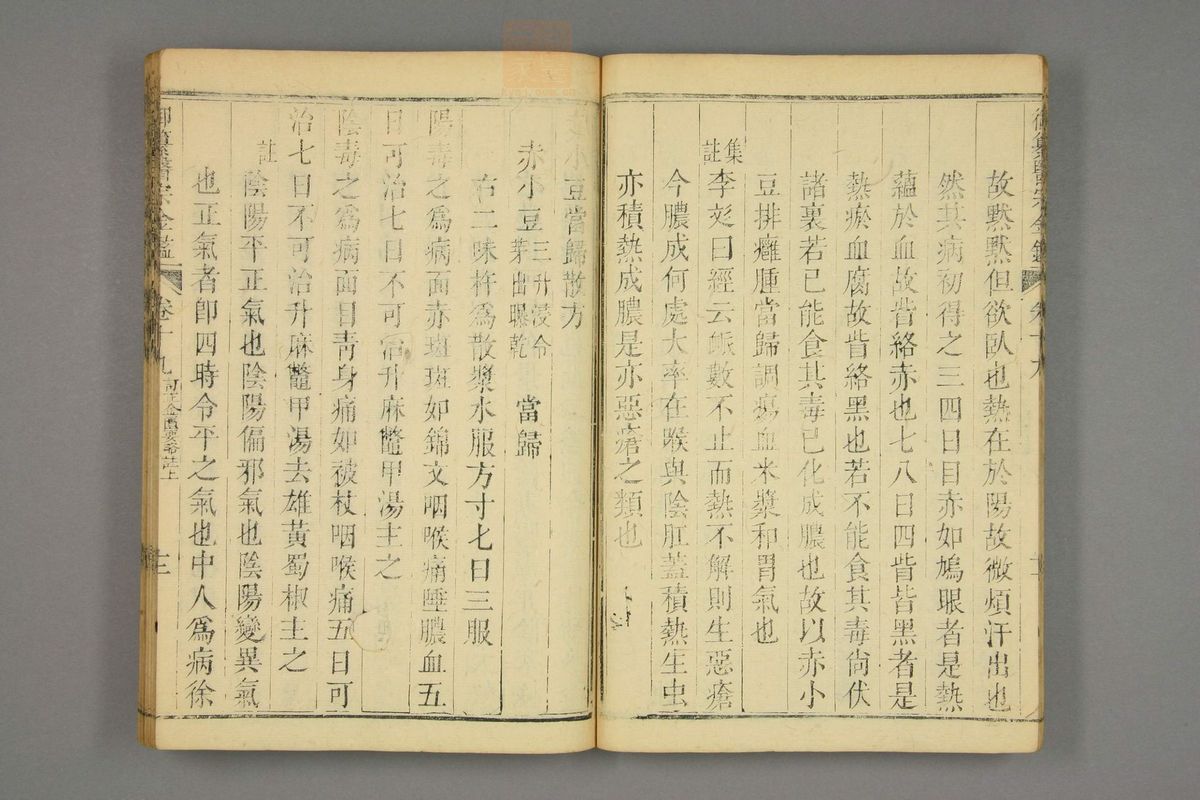 故黙黙但欲臥也熱在於陽故微煩汗出也
然其病初得之三四日目赤如鳩眼者是熱
蘊於血故眥絡赤也七八日四眥皆黑者是
熱瘀血腐故眥絡黑也若不能食其毒尚伏
諸裏若已能食其毒已化成膿也故以赤小
豆排癰腫當歸調瘍血米漿和胃氣也
集註
李彣曰經云脈數不止而熱不解則生惡瘡
今膿成何處大率在喉與陰肛蓋積熱生虫
亦積熱成膿是亦惡瘡之類也
小豆當歸散方
赤小豆三升浸令芽出曝乾 當歸
右二味杵為散漿水服方寸七日三服
陽毒之為病面赤斑斑如錦文咽喉痛唾膿血五
日可治七日不可治升麻鼈甲湯主之
陰毒之為病面目青身痛如被杖咽喉痛五日可
治七日不可治升麻鼈甲湯去雄黃蜀椒主之
註
陰陽平正氣也陰陽偏邪氣也陰陽變異氣
也正氣者即四時令平之氣也中人為病徐
御纂醫宗金鑑
卷十九
訂正金匱要略註上